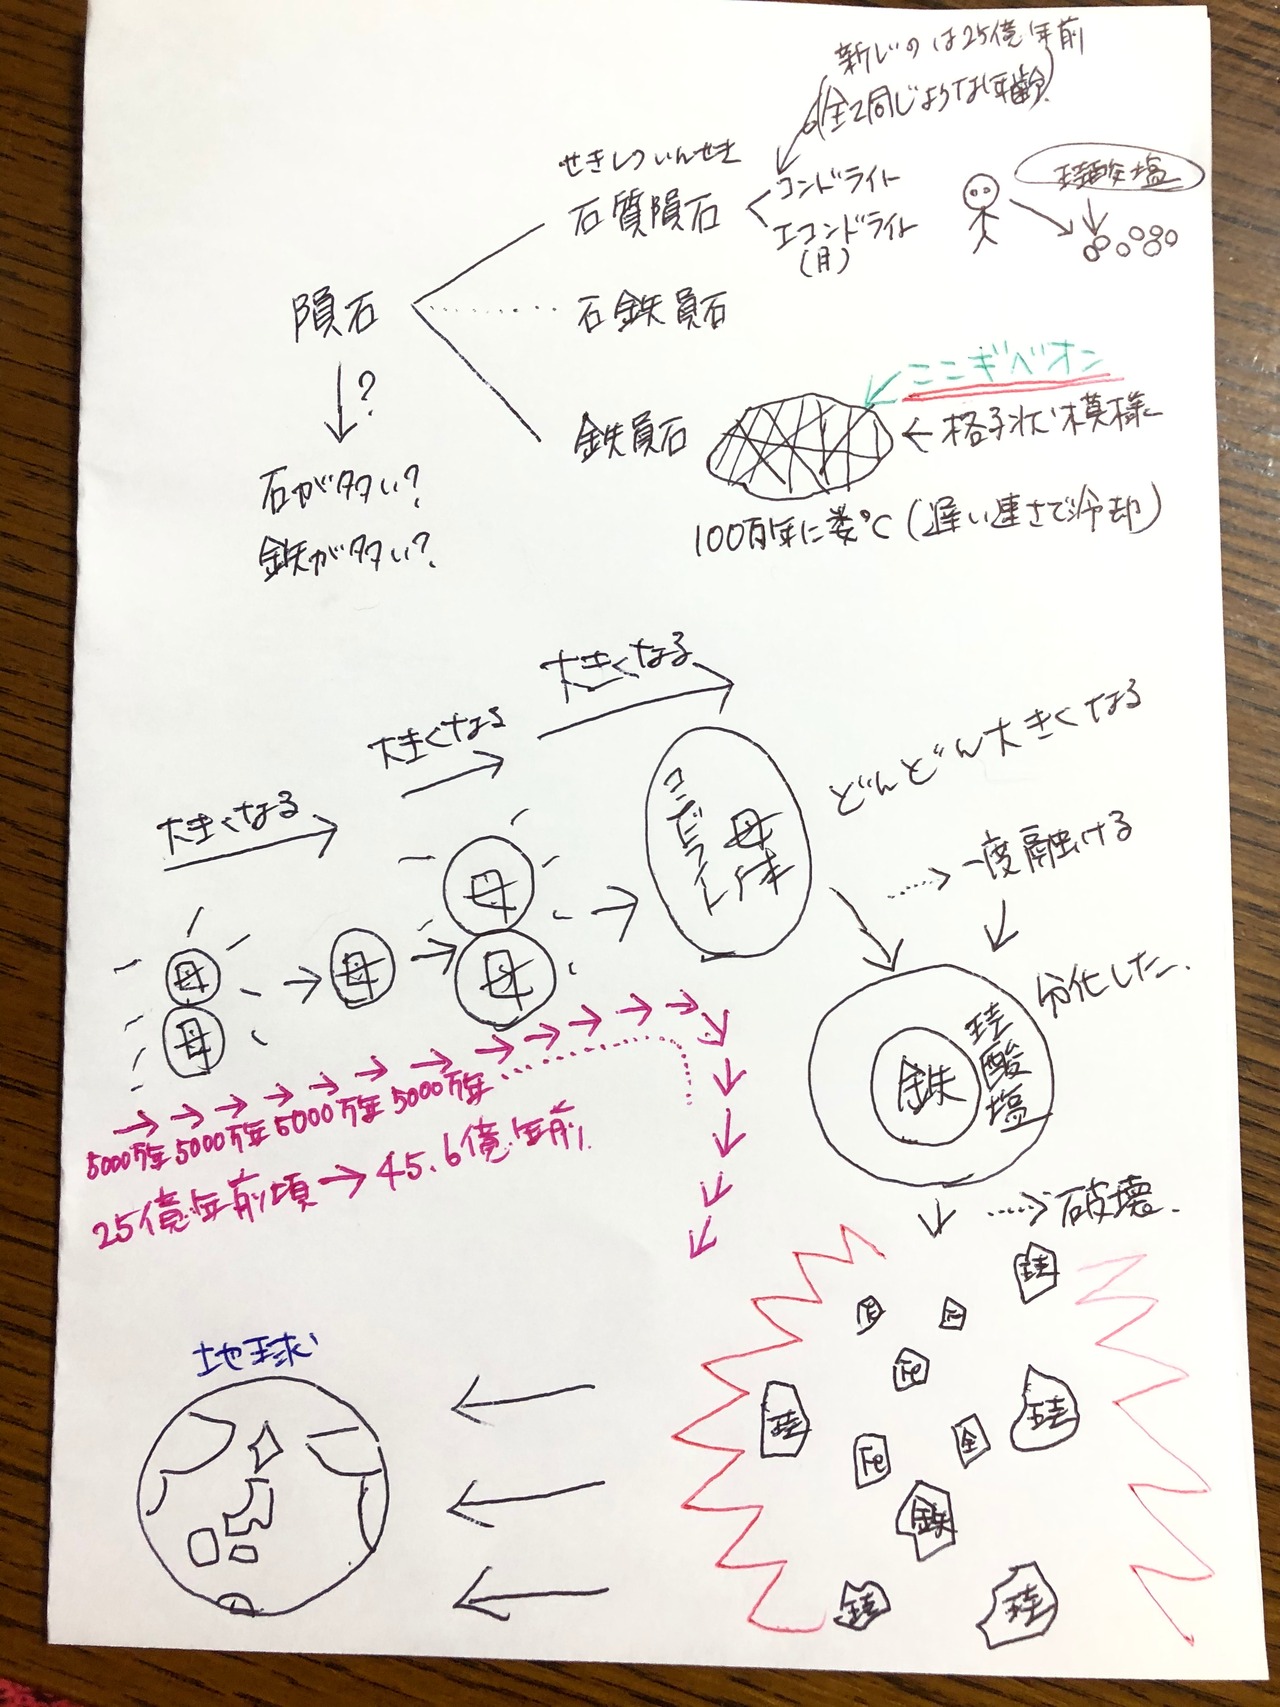 新しいのは25億年前
(全て同じような年齢)
せきしついんせき
石質隕石
コンドライト
エコンドライト
(月)
珪酸塩
隕石
石鉄員石
?
石が多い?
鉄が多い?
ここギベオン
鉄員石
←格子状模様
100万年に数℃(遅い速さで冷却)
大きくなる
大きくなる
大きくなる
どんどん大きくなる
コンドライト
母体
一度融ける
母
母
母
母
母
分化した
鉄
珪酸塩
5000万年 5000万年 5000万年 5000万年
25億年前頃→45.6億年前
破壊
地球
珪
Fe
珪
珪
Fe
金
鉄
珪